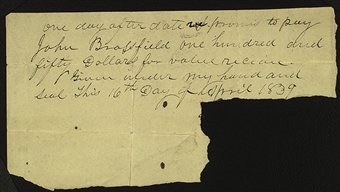 one day after date we promis to pay
John Brossfield one hundred and
fifty Dollars for value reciev
Given under my hand and
seal This 16th Day of April 1839